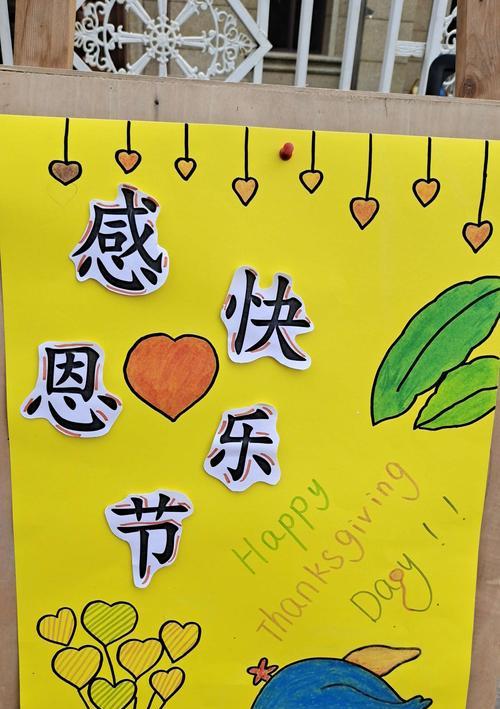 感恩节
快乐
Happy
Thanksgiving
Day!!